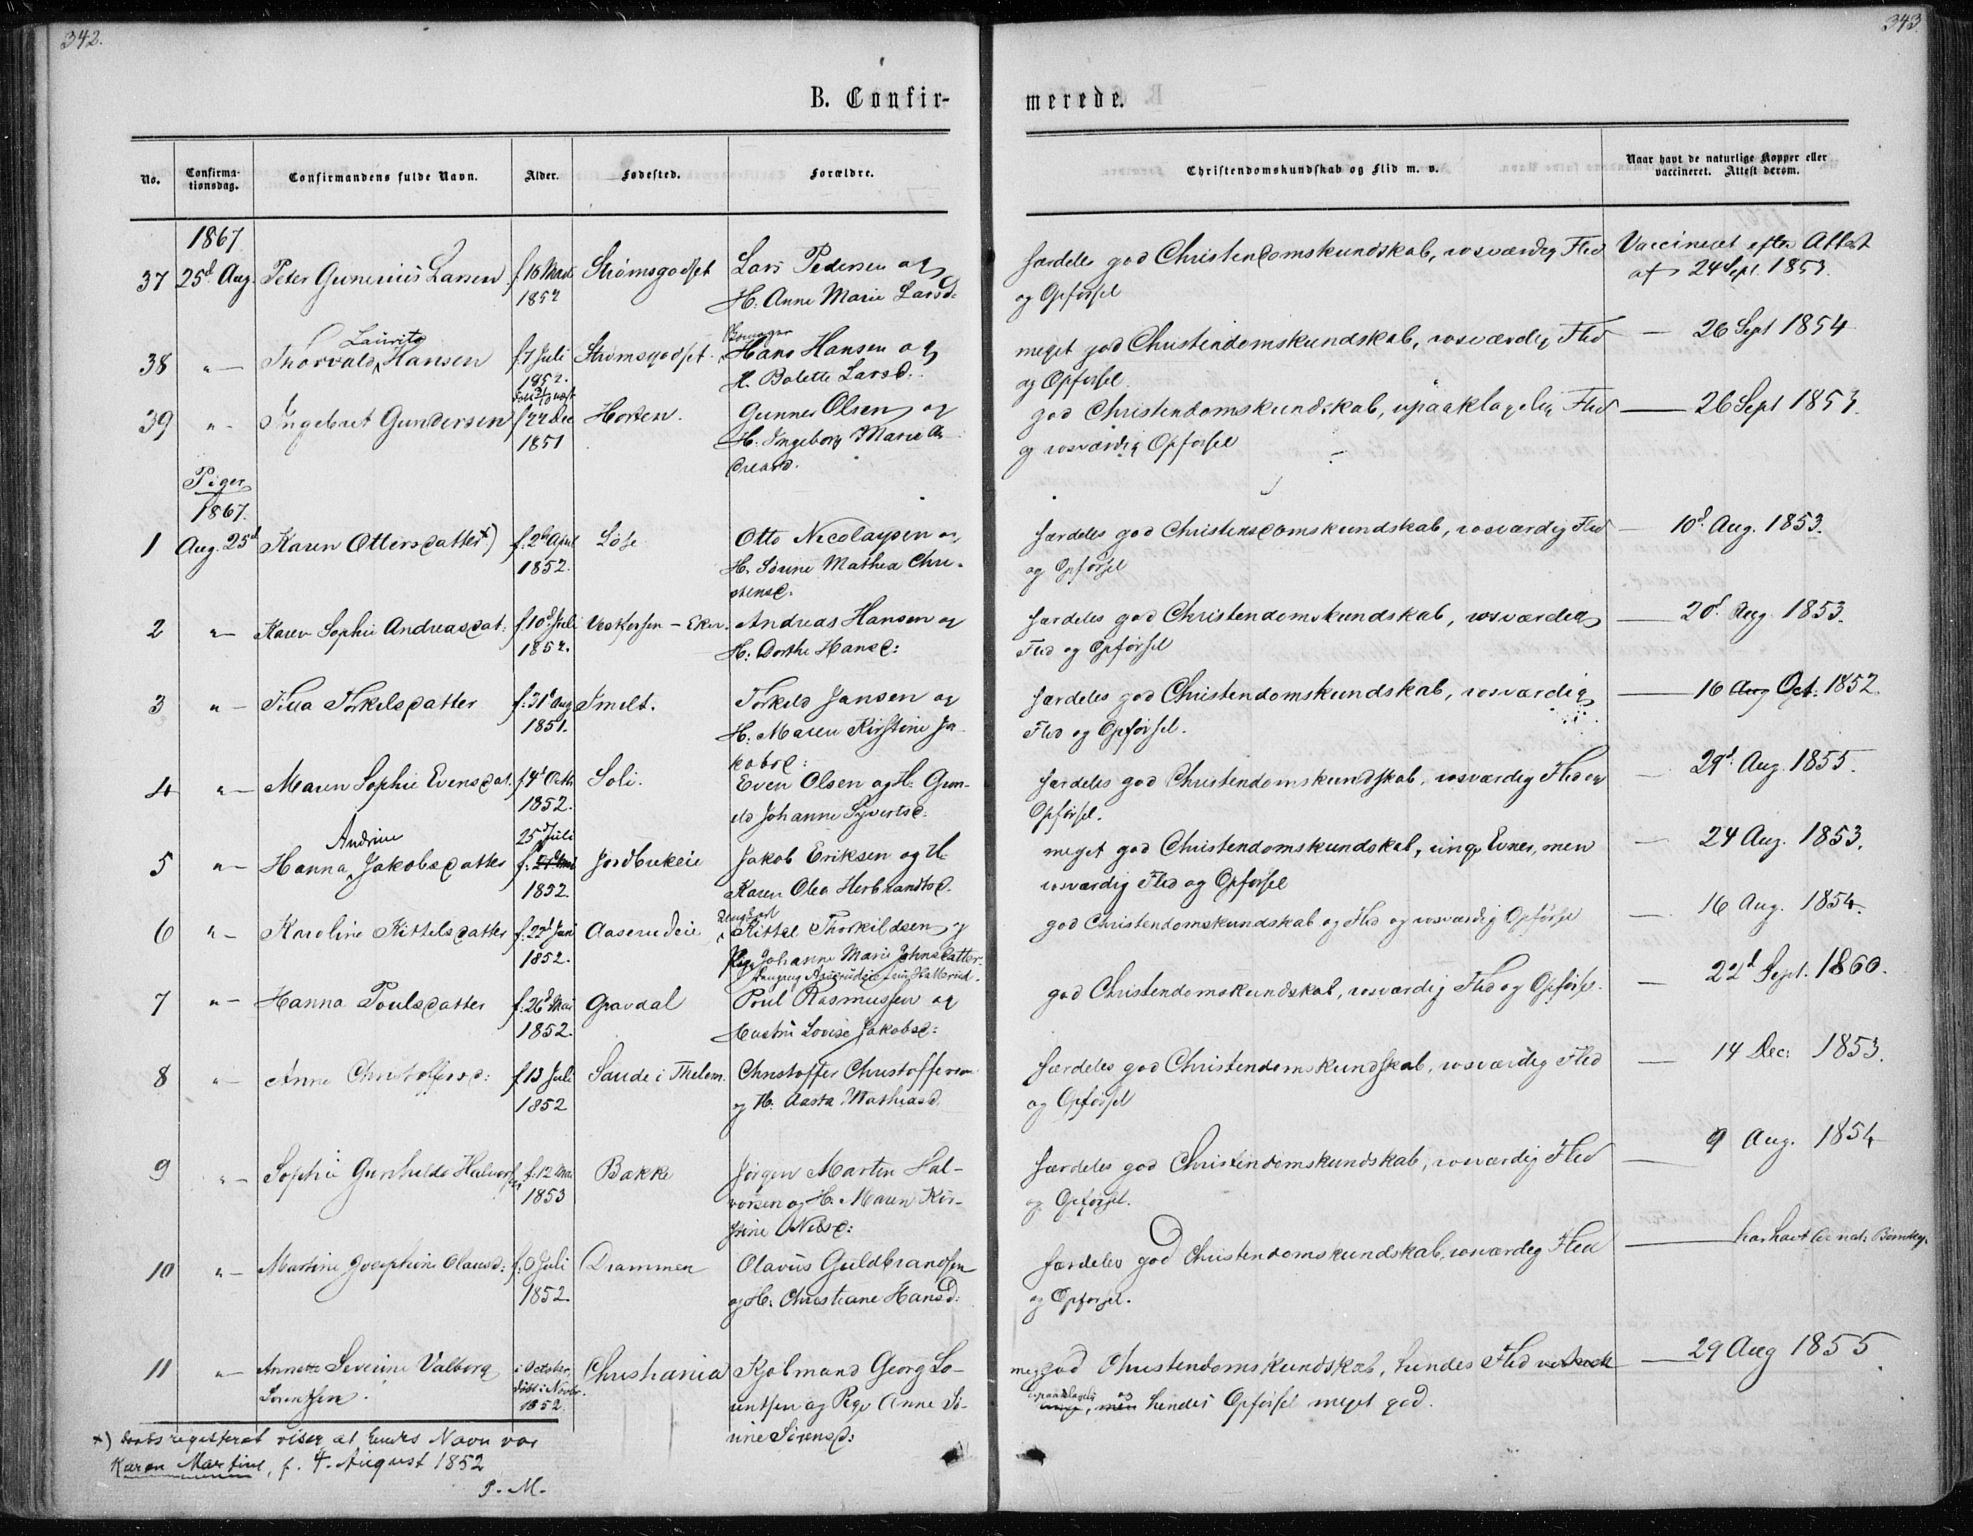 342.
343.
B. Confir-
merede.
No.
Confirma-
tionsdag.
Confirmandens fulde Navn.
Alder.
Fødested.
Forældre.
Christendomskundskab og Flid m. v.
Naar havt de naturlige Kopper eller
vaccineret. Attest derom.
1867
37 25d Aug. Peter Gunerius Larsen f. 16 1852 Strømsgodset Lars Pedersen og
H. Anne Marie Larsd.
særdeles god Christendomskundskab, rosværdig Flid
og Opførsel
Vaccineret efter Attest
af 24 Sept. 1853.
38 "– Thorvald Lauritz Hansen f. 7 Juli
1852. Strømsgodset Hans Hansen og
H. Bolette Larsd.
meget god Christendomskundskab, rosværdig Flid
og Opførsel
— 26 Sept 1854
39 "– Ingebret Gundersen f. 22 Dec
1851 Horten. Gunner Olsen og
H. Ingeborg Marie An
dreasd.
god Christendomskundskab, upaaklagelig Flid
og rosværdig Opførsel
— 26 Sept 1853.
Piger
1867.
1 Aug. 25d Karen Ottersdatter *) f. 2d April
1852. Otto Nicolaysen og
H. Sørine Mathea Chri-
stensd.
særdeles god Christensdomskundskab, rosværdig Flid
og Opførsel
— 10d. Aug. 1853.
2 "– Karen Sophie Andreasdat. f. 10d Juli
1852. – Eker. Andreas Hansen og
H: Dorthe Hansd:
særdeles god Christendomskundskab, rosværdig
Flid og Opførsel
— 20d. Aug. 1853.
3 "– Torkelsdatter f: 31d Aug
1851. Smelt. Torkeld Jansen og
H: Maren Kirstine Ja
kobsd:
særdeles god Christendomskundskab, rosværdig
Flid og Opførsel.
— 16 Aug Oct: 1852.
4 "– Maren Sophie Evensdat. f. 4d Octb
1852. Soli. Even Olsen og H: Gun-
ild Johanne Syvertsd:
særdeles god Christendomskundskab, rosværdig Flid og
Opførsel.
— 29d. Aug. 1855.
5 "– Hanna Andrine Jakobsdatter 25d Juli
1852. Jordbrekeie Jakob Eriksen og H.
Karen Olea Herbrandtsd.
meget god Christendomskundskab, ringe Evner, men
rosværdig Flid og Opførsel
— 24 Aug. 1853.
6 "– Karoline Kittelsdatter f. 22d Juni
1852. Aaserudeie Ungkarl Kittel Thorkildsen og
Pige Johanne Marie Johnsdatter.
god Christendomskundskab og Flid og rosværdig Opførsel
— 16 Aug. 1854.
7 "– Hanna Poulsdatter f. 26d Mai
1852. Gravdal Poul Rasmussen og
Hustru Lovise Jakobsd:
god Christendomskundskab, rosværdig Flid og Opførs.
— 22d Sept. 1860.
8 "– Anne Christoffersd: f. 13 Juli
1852 Saude i Thelem. Christoffer Christoffersen
og H. Aasta Mathiasd.
særdeles god Christendomskundskab, rosværdig Flid
og Opførsel
— 14 Dec: 1853.
9 "– Sophie Gunhilde Halvorsen f. 12 Mai
1853 Bakke Jørgen Martin Hal-
vorsen og H. Maren Kir-
stine Nilsd:
særdeles god Christendomskundskab, rosværdig Flid
og Opførsel.
— 9 Aug. 1854
10 "– Martine Josephine Olausd: f. 6 Juli
1852. Drammen Olavus Guldbrandsen
og H: Christiane Hansd:
særdeles god Christendomskundskab, rosværdig Flid
og Opførsel.
— har havt de nat:
11 "– Annette Severine Valborg
Lorentsen. i October,
døbt i Novbr.
1852. Christiania Kjøbmand Georg Lo-
rentsen og Pige Anne Sø-
rine Sørensd:
god Christendomskundskab, hendes Flid
upaaklagelig, men og hendes Opførsel meget god.
— 29 Aug 1855.
*) Daabsregisteret viser at hendes Navn var
Karen Martine, f. 4. August 1852
P. M.